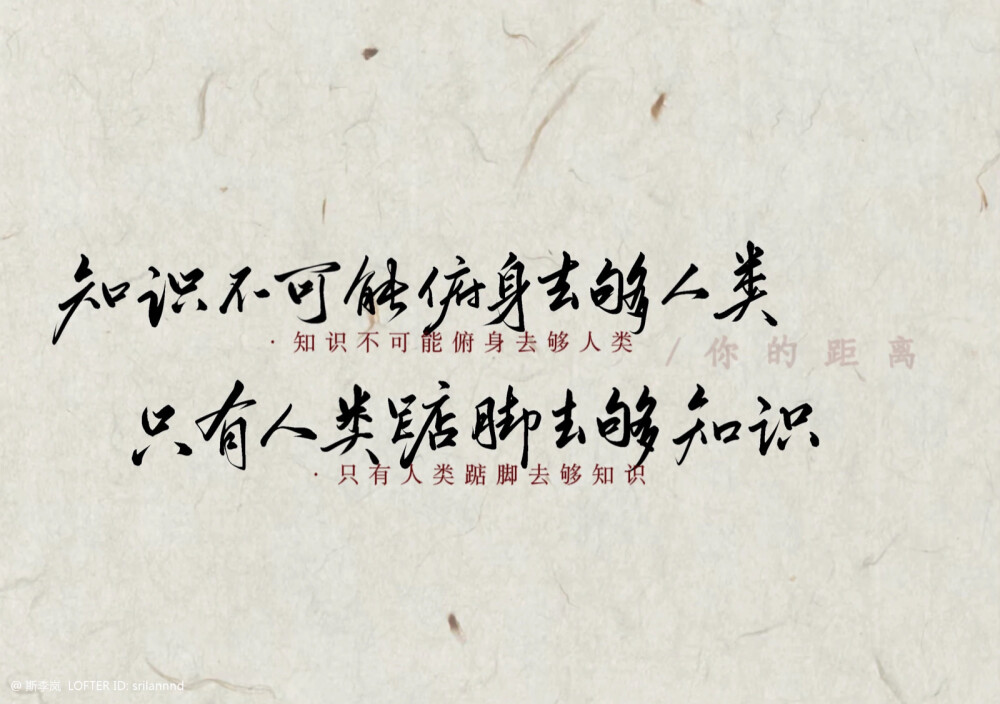 知识不可能俯身去够人类
· 知识不可能俯身去够人类
/ 你的距离
只有人类踮脚去够知识
· 只有人类踮脚去够知识
LOFTER ID: srilannnd